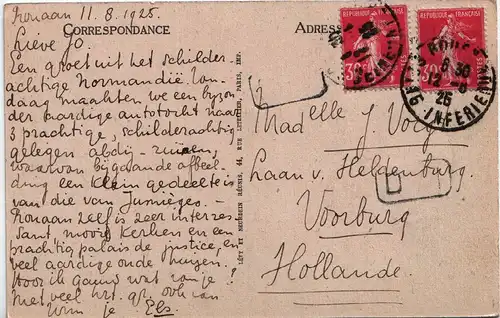 Rouaan 11.8.1925.
Lieve Jo.
CORRESPONDANCE
Een groet uit het schilder-
achtige Normandië. Van-
daag maakten we een byzon
der aardige autotocht naar
3 prachtige, schilderachtig
gelegen abdij-ruïnen,
waarvan bijgaande afbeel-
ding een klein gedeelte is
van die van Jumièges.-
Rouaan zelf is zeer interes-
sant, mooie kerken en een
prachtig palais de justice, en
veel aardige oude huizen.
Hoor ik gauw wat van je?
Met veel hrt. gr. ook van
Wim je Els.
LÉVY ET NEURDEIN RÉUNIS, 44, RUE LETELLIER, PARIS, IMP.
ADRESSE
REPUBLIQUE FRANÇAISE
REPUBLIQUE FRANÇAISE
POSTES
ROUEN
8 30
12 -8
25
SEINE INFERIEURE
Mademelle J.
Laan v. Heldenburg
Voorburg
Hollande.